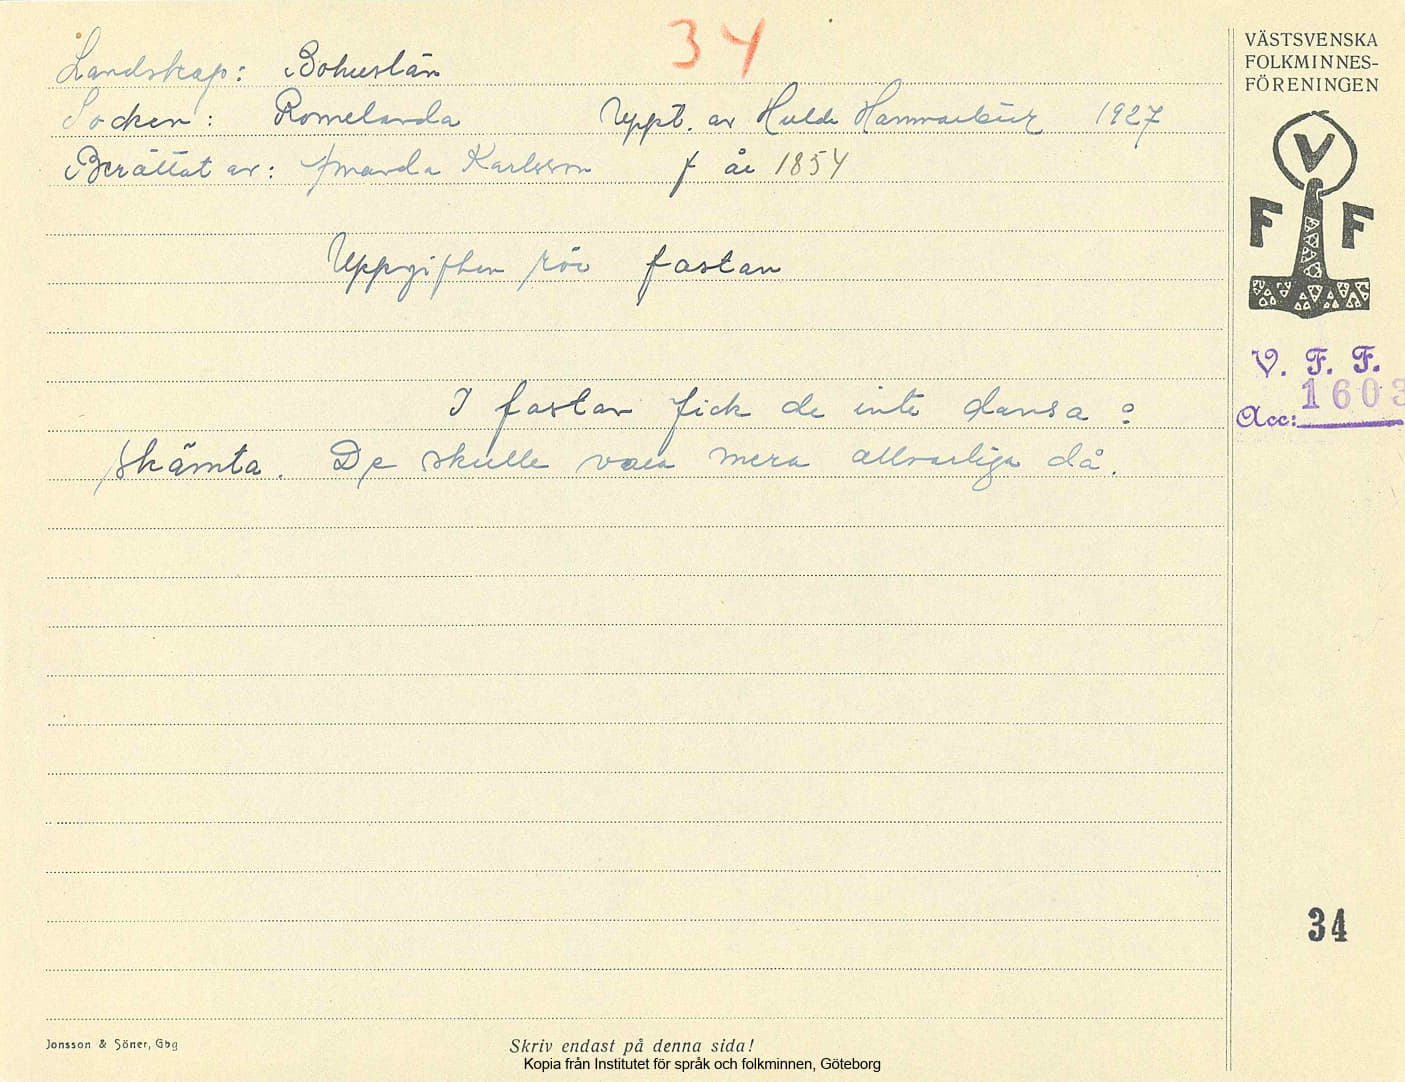 34
Landskap: Bohuslän
Socken: Romelanda Uppt. av Hulda Hammarbäck 1927
Berättat av: Amanda Karlsson f år 1854
Uppgiften rör fastan
I fastan fick de inte dansa o
skämta. De skulle vara mera allvarliga då.
VÄSTSVENSKA
FOLKMINNES-
FÖRENINGEN
V
F F
V. F. F.
1603
Acc:
34
Jonsson & Söner, Gbg
Skriv endast på denna sida!
Kopia från Institutet för språk och folkminnen, Göteborg